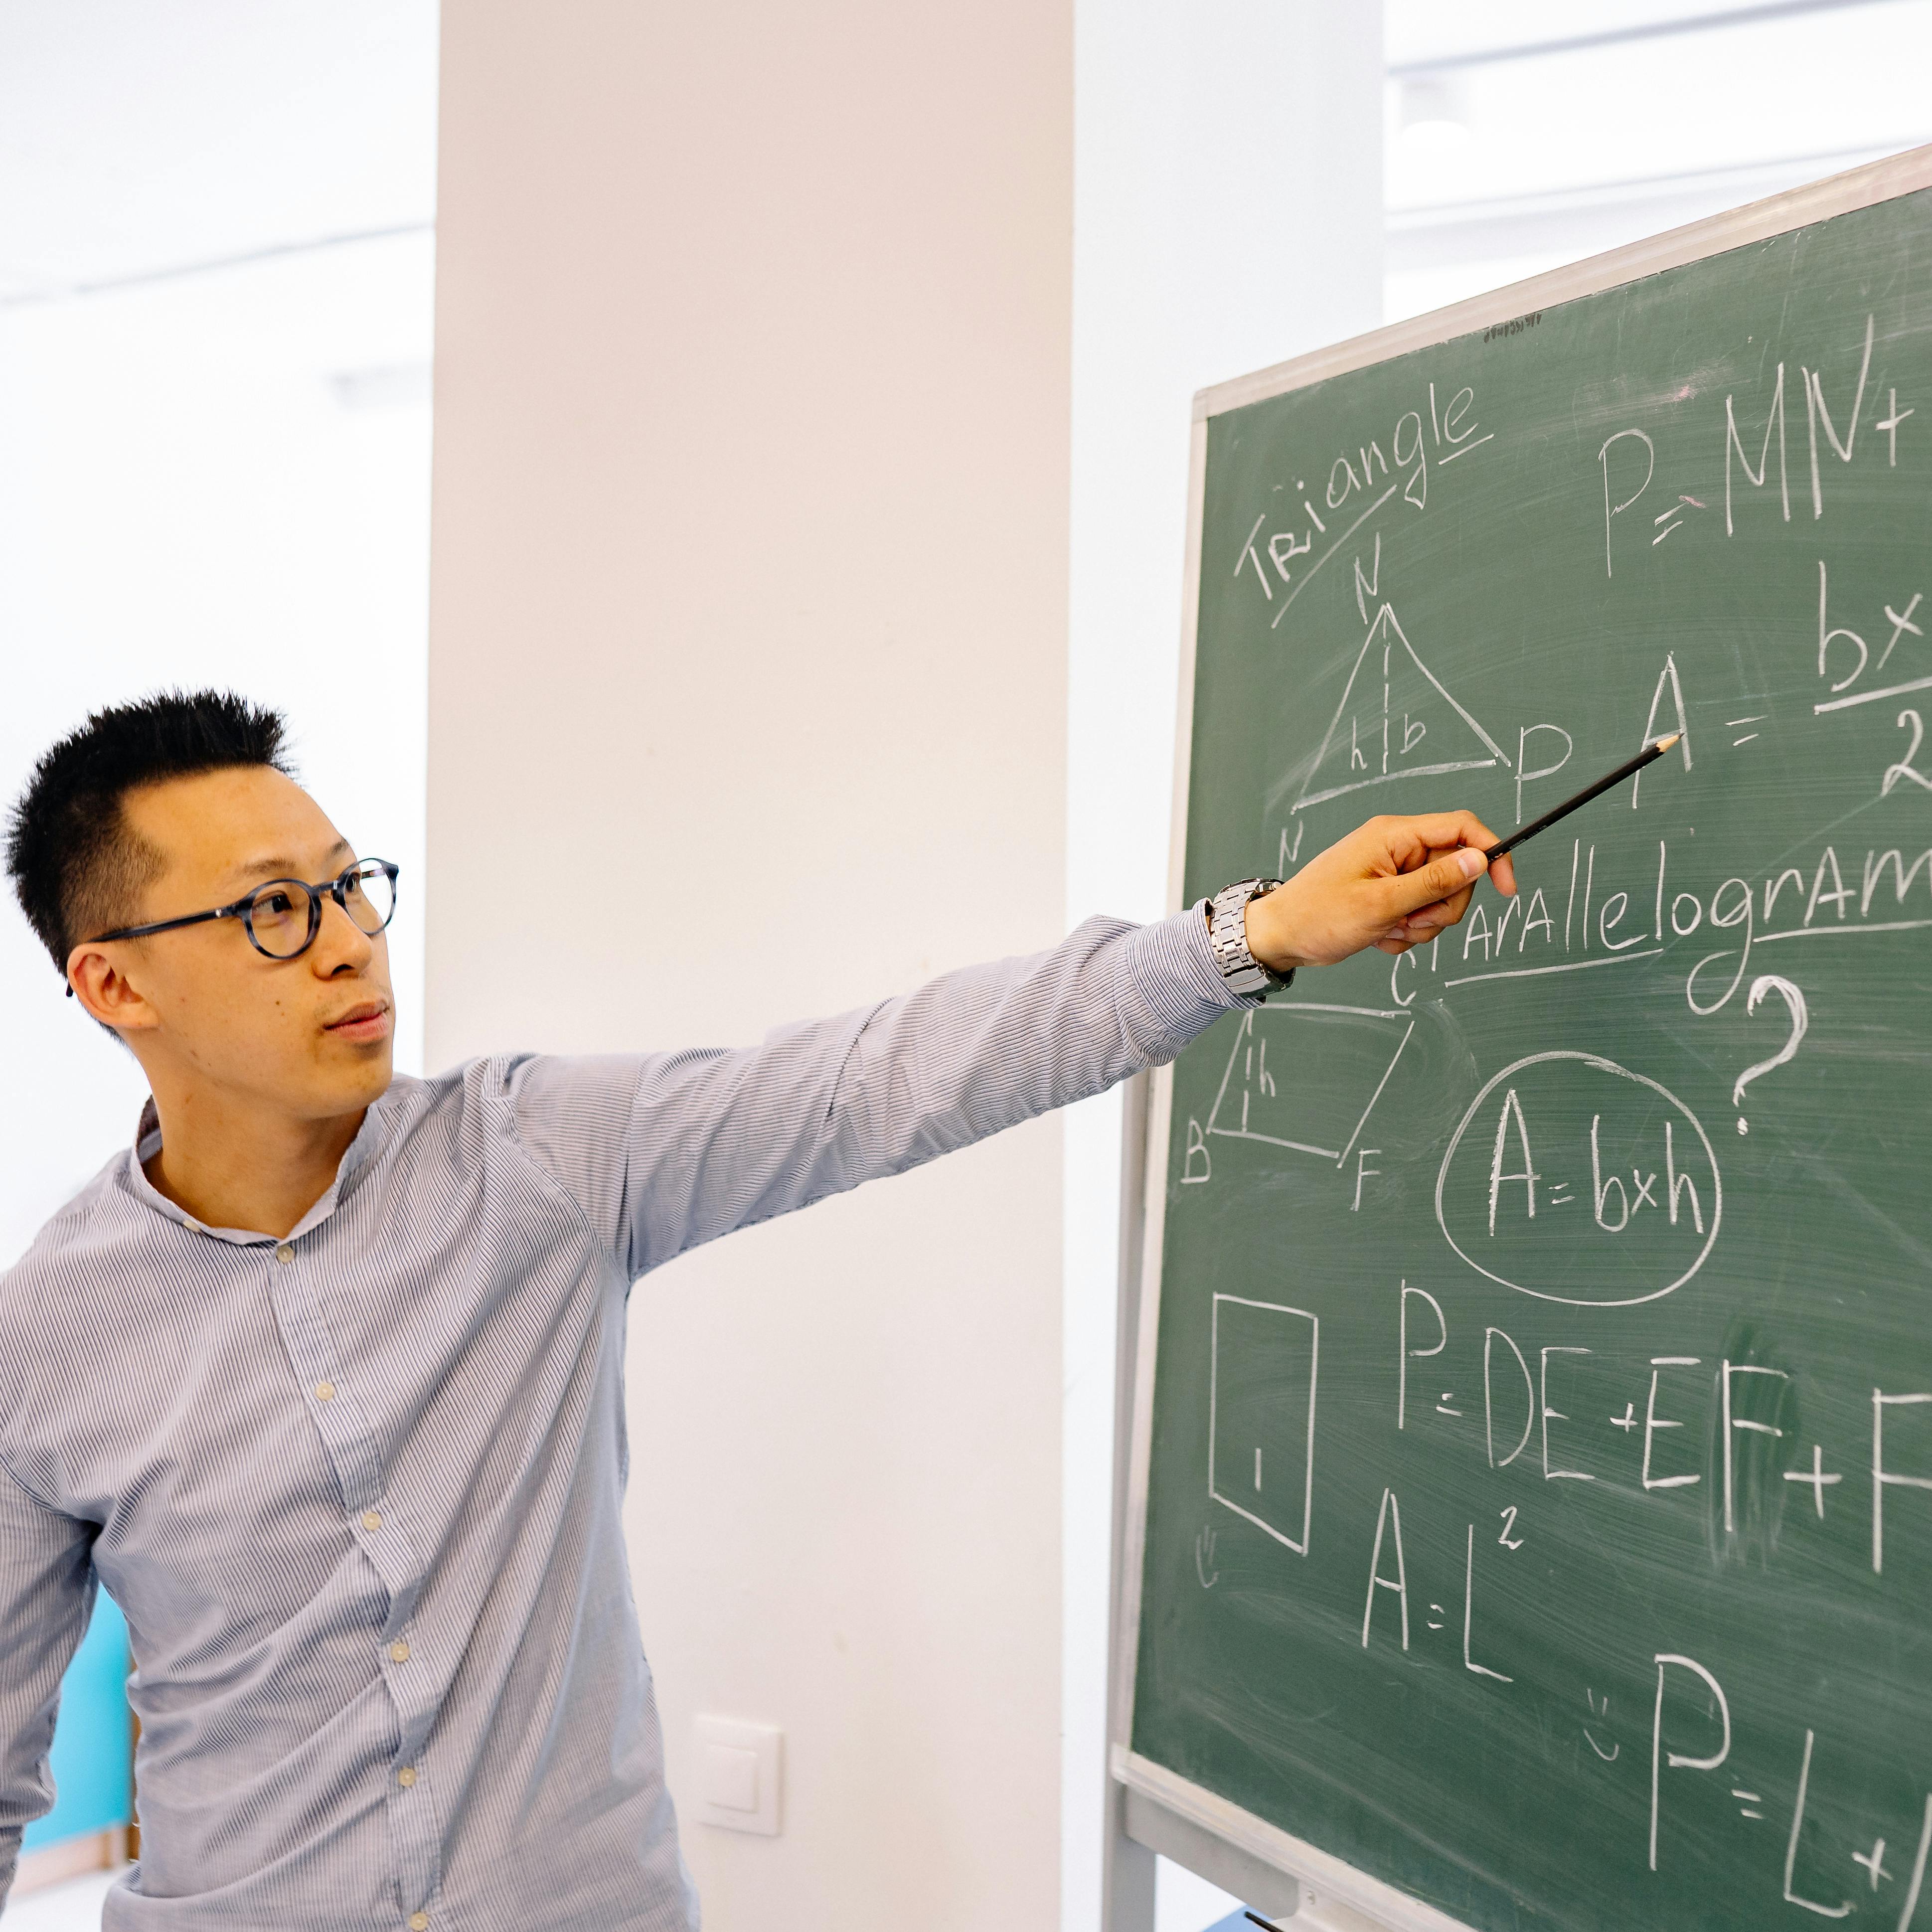 Triangle
P = MN+
N
h b
P
A = bx
2
N
Parallelogram
C
?
h
B
F
A = bxh
P = DE + EF + F
A = L²
P = L +